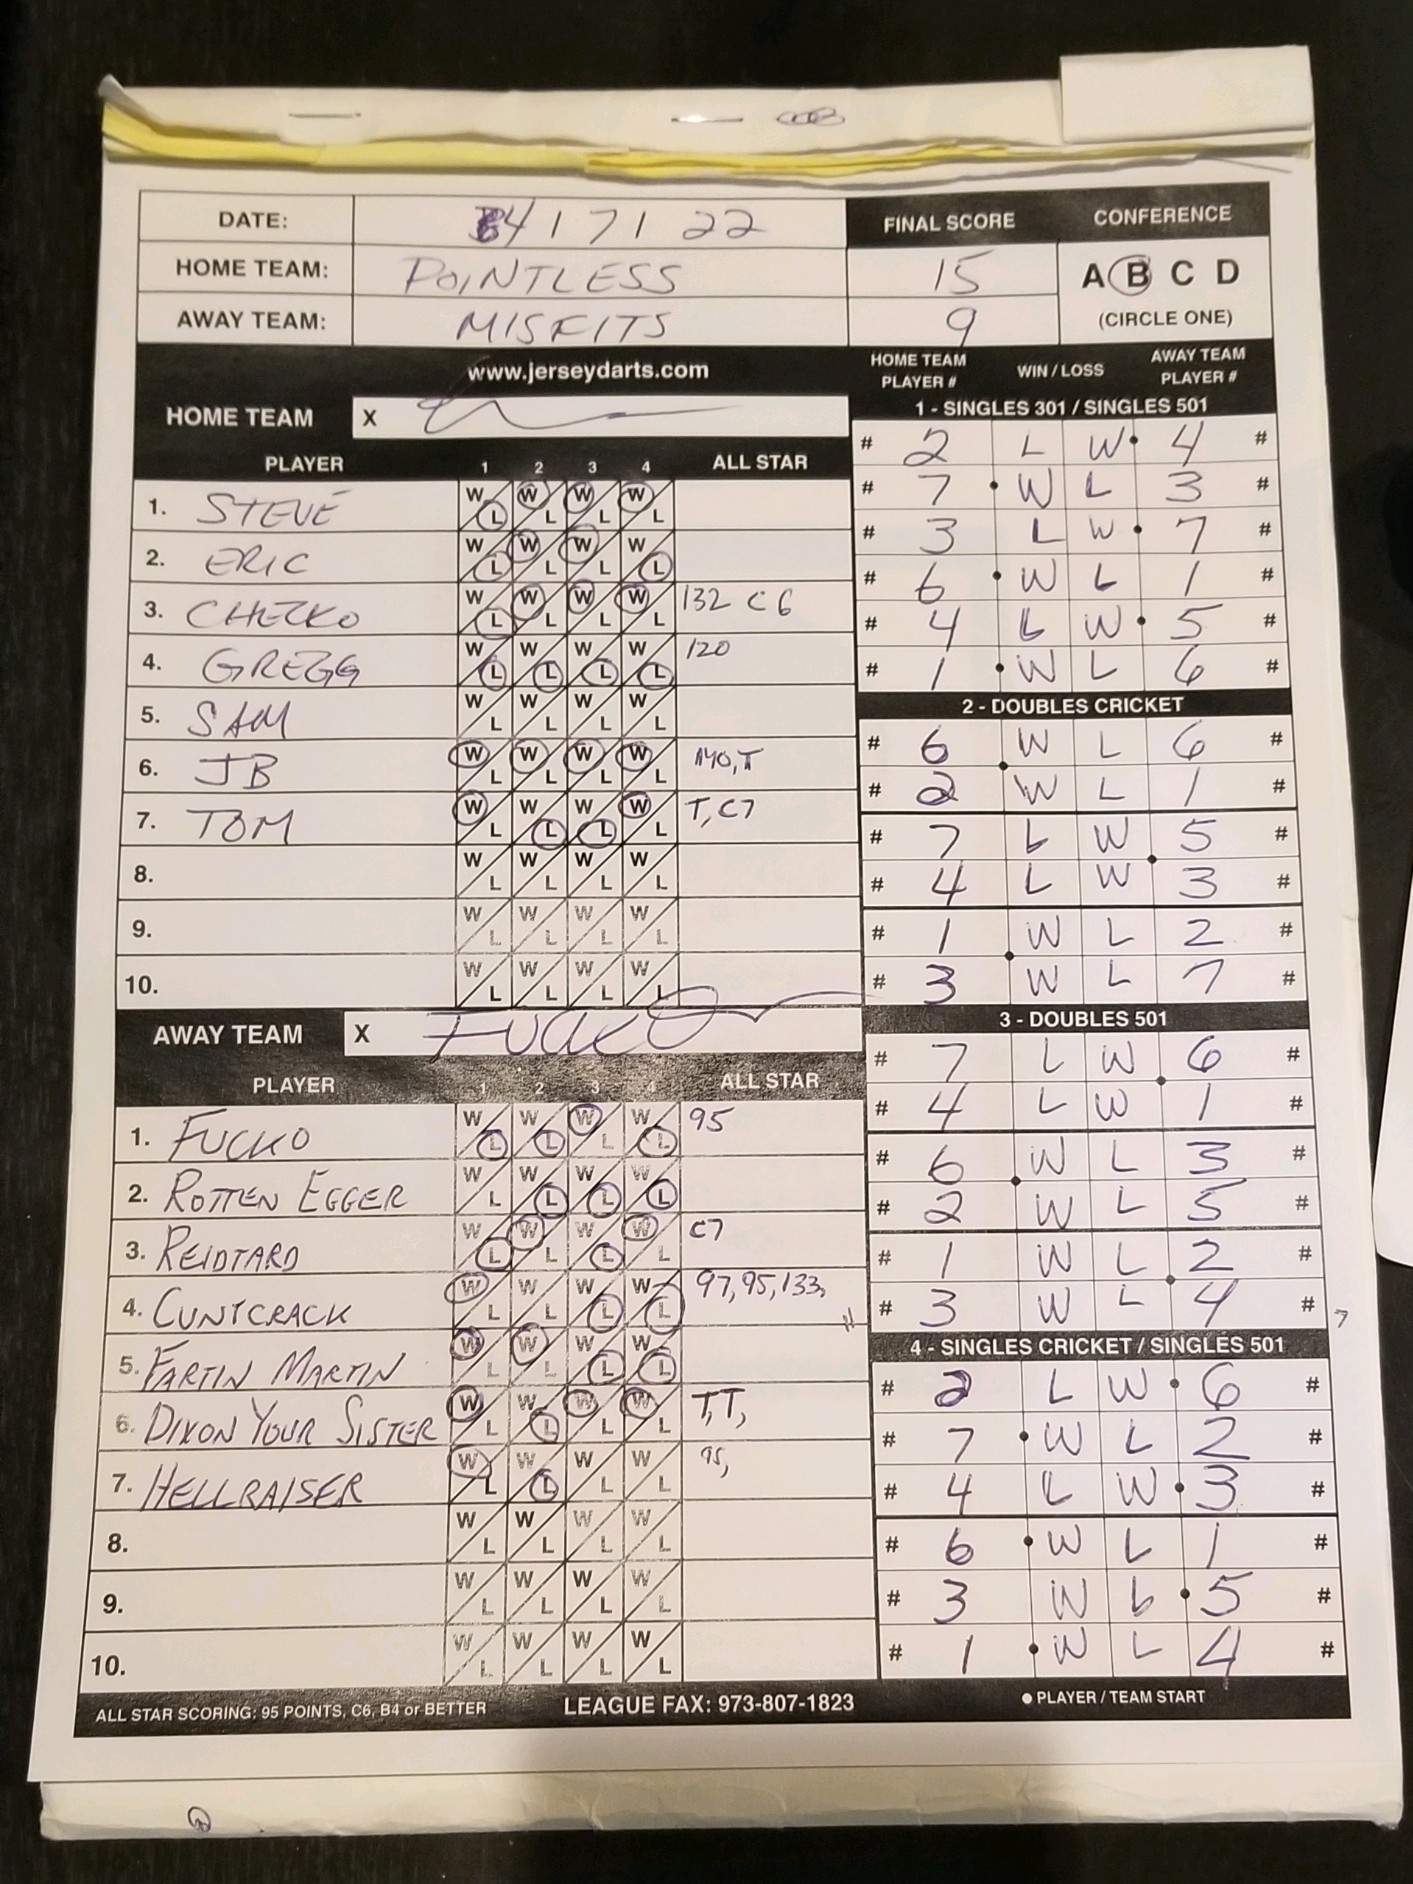 DATE: 4 1 7 1 22
HOME TEAM: POINTLESS
AWAY TEAM: MISFITS
FINAL SCORE
15
9
CONFERENCE
A B C D
(CIRCLE ONE)
www.jerseydarts.com
HOME TEAM X
PLAYER 1 2 3 4 ALL STAR
1. STEVE W L W L W L W L
2. ERIC W L W L W L W L
3. CHEZKO W L W L W L W L 132 C6
4. GREGG W L W L W L W L 120
5. SAM W L W L W L W L
6. JB W L W L W L W L 140, T
7. TOM W L W L W L W L T, C7
8. W L W L W L W L
9. W L W L W L W L
10. W L W L W L W L
AWAY TEAM X FUCKO
PLAYER 1 2 3 4 ALL STAR
1. FUCKO W L W L W L W L 95
2. ROTTEN EGGER W L W L W L W L
3. REIDTARD W L W L W L W L C7
4. CUNTCRACK W L W L W L W L 97, 95, 133,
5. FARTIN MARTIN W L W L W L W L
6. DIXON YOUR SISTER W L W L W L W L T, T,
7. HELLRAISER W L W L W L W L 95,
8. W L W L W L W L
9. W L W L W L W L
10. W L W L W L W L
HOME TEAM PLAYER # WIN / LOSS AWAY TEAM PLAYER #
1 - SINGLES 301 / SINGLES 501
# 2 L W 4 #
# 7 W L 3 #
# 3 L W 7 #
# 6 W L 1 #
# 4 L W 5 #
# 1 W L 6 #
2 - DOUBLES CRICKET
# 6 W L 6 #
# 2 W L 1 #
# 7 L W 5 #
# 4 L W 3 #
# 1 W L 2 #
# 3 W L 7 #
3 - DOUBLES 501
# 7 L W 6 #
# 4 L W 1 #
# 6 W L 3 #
# 2 W L 5 #
# 1 W L 2 #
# 3 W L 4 # 7
4 - SINGLES CRICKET / SINGLES 501
# 2 L W 6 #
# 7 W L 2 #
# 4 L W 3 #
# 6 W L 1 #
# 3 W L 5 #
# 1 W L 4 #
ALL STAR SCORING: 95 POINTS, C6, B4 or BETTER
LEAGUE FAX: 973-807-1823
PLAYER / TEAM START